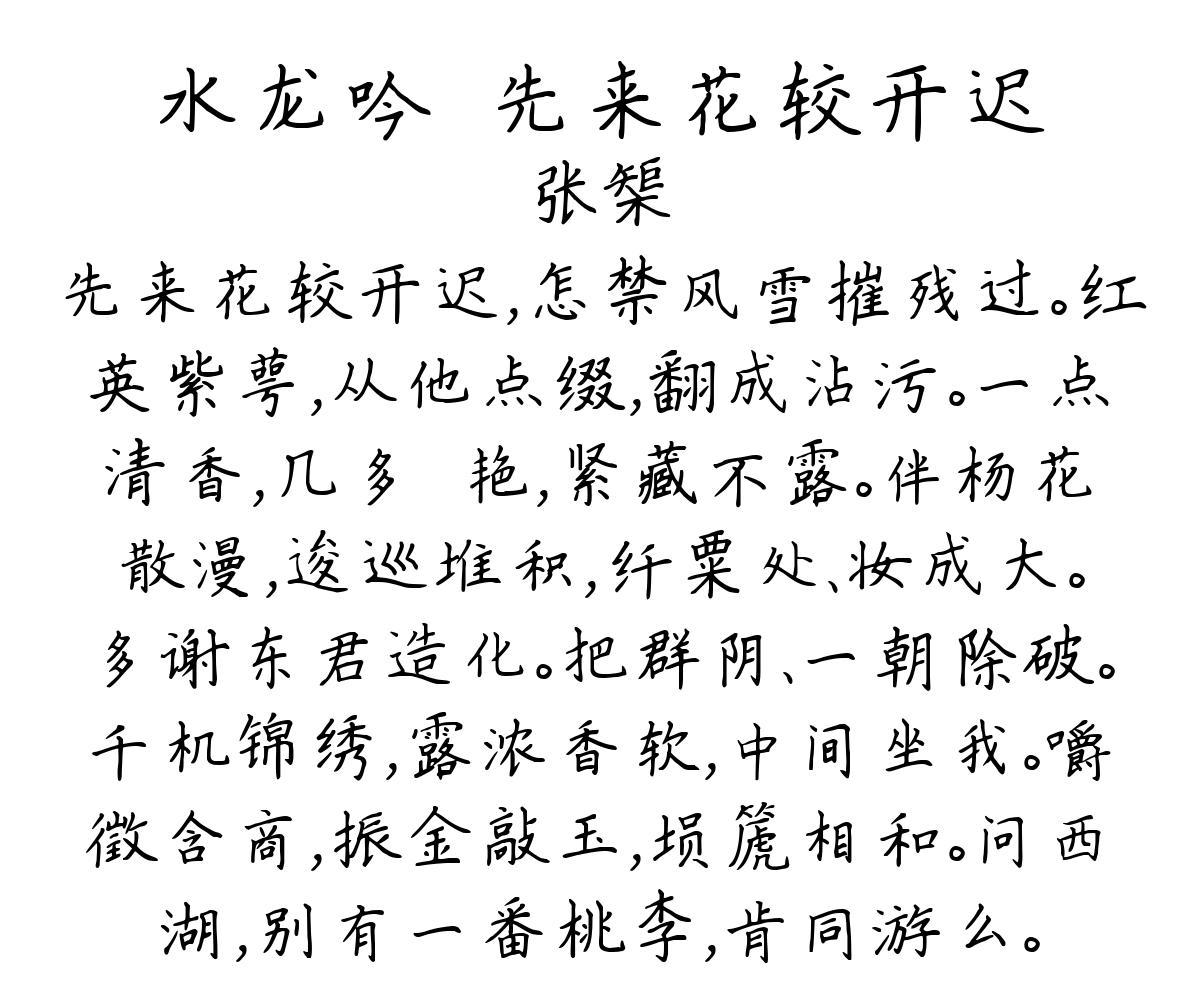 水龙吟 先来花较开迟
张榘
先来花较开迟,怎禁风雪摧残过。红
英紫萼,从他点缀,翻成沾污。一点
清香,几多 艳,紧藏不露。伴杨花
散漫,逡巡堆积,纤粟处、妆成大。
多谢东君造化。把群阴、一朝除破。
千机锦绣,露浓香软,中间坐我。嚼
徵含商,振金敲玉,埙篪相和。问西
湖,别有一番桃李,肯同游么。